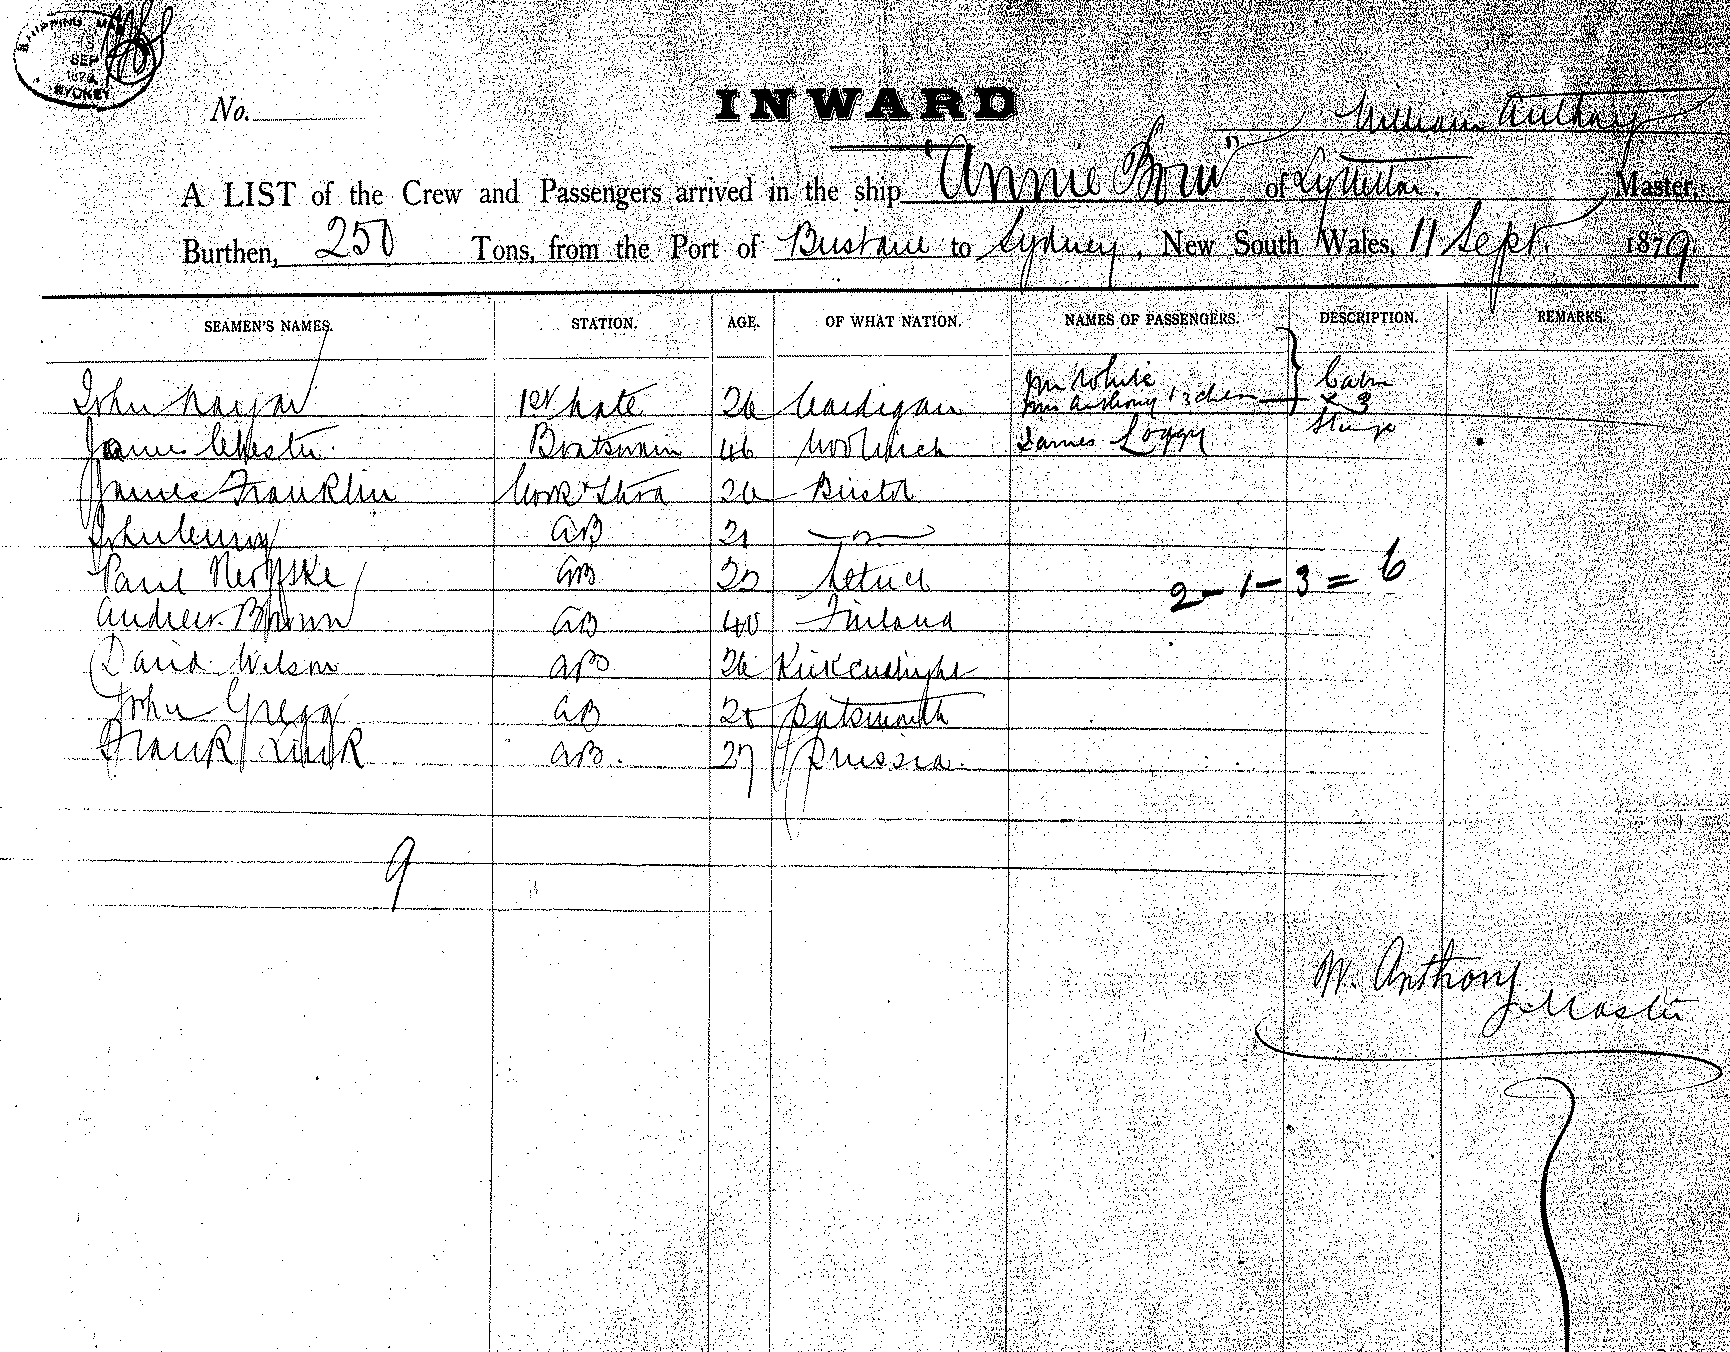 SEP
SYDNEY
No.
INWARD
William Anthony
A LIST of the Crew and Passengers arrived in the ship "Annie Bow" of Lyttelton. Master,
Burthen, 250 Tons, from the Port of Brisbane to Sydney, New South Wales, 11 Sept. 1879
SEAMEN'S NAMES. STATION. AGE. OF WHAT NATION. NAMES OF PASSENGERS. DESCRIPTION. REMARKS.
John 1st Mate 26 Cardigan Mr White
Mrs Anthony & 3 chen
James Chester Boatswain 46 Woolwich James Loggy
James Franklin Cook & Stwd 26 Bristol
John AB 21 — " —
Paul AB Stettin
2 - 1 - 3 = 6
Andrew Brown AB 40 Finland
David Wilson AB 26 Kirkcudbright
John Gregg AB Portsmouth
Frank Link AB. 27 Prussia.
9
W. Anthony
Master